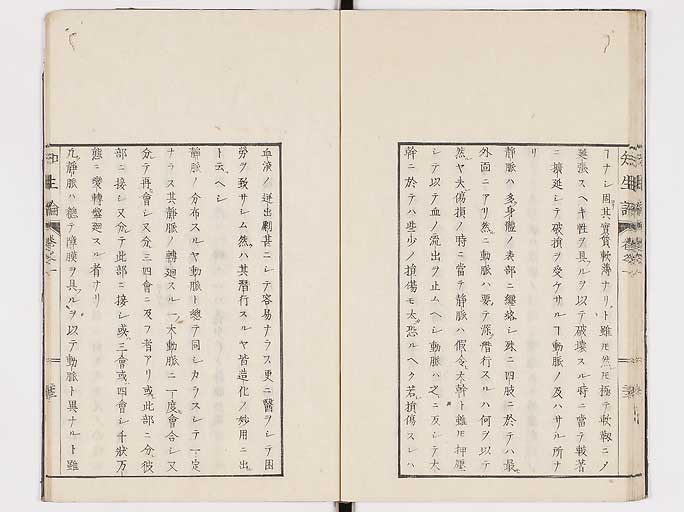 ヿナシ固其實質軟薄ナリト雖𪜈然𪜈極テ軟靱ニノ
延張スヘキ性ヲ具ルヲ以テ破壊スル時ニ當テ較著
ニ擴延シテ破損ヲ受ケサルヿ動脈ノ及ハサル所ナ
リ
静脈ハ多身體ノ表部ニ纏絡シ殊ニ四肢ニ於テハ最
外面ニアリ然ニ動脈ハ要テ深潜行スルハ何ヲ以テ
然ヤ夫傷損ノ時ニ當テ静脈ハ假令大幹ト雖𪜈押壓
シテ以テ血ノ流出ヲ止ムヘシ動脈ハ之ニ反シテ大
幹ニ於テハ些少ノ損傷モ太恐ルヘク若損傷スレハ
血液ノ迸出劇甚ニシテ容易ナラス更ニ醫ヲシテ困
勞ヲ致サシム然ハ其潜行スルヤ皆造化ノ妙用ニ出
ト云ヘシ
静脈ノ分布スルヤ動脈ト總テ同シカラスシテ一定
ナラス其静脈ノ轉廻スル一大動脈ニ一度會合シ又
分テ再會シ又分三四會ニ及フ者アリ或此部ニ分彼
部ニ接シ又分テ此部ニ接シ或三會或四會シ千狀万
態ニ變轉盤廻スル者ナリ
凡静脈ハ總テ障膜ヲ具ルヲ以テ動脈ト異ナルト雖
知生論 巻之一
知生論 巻之一